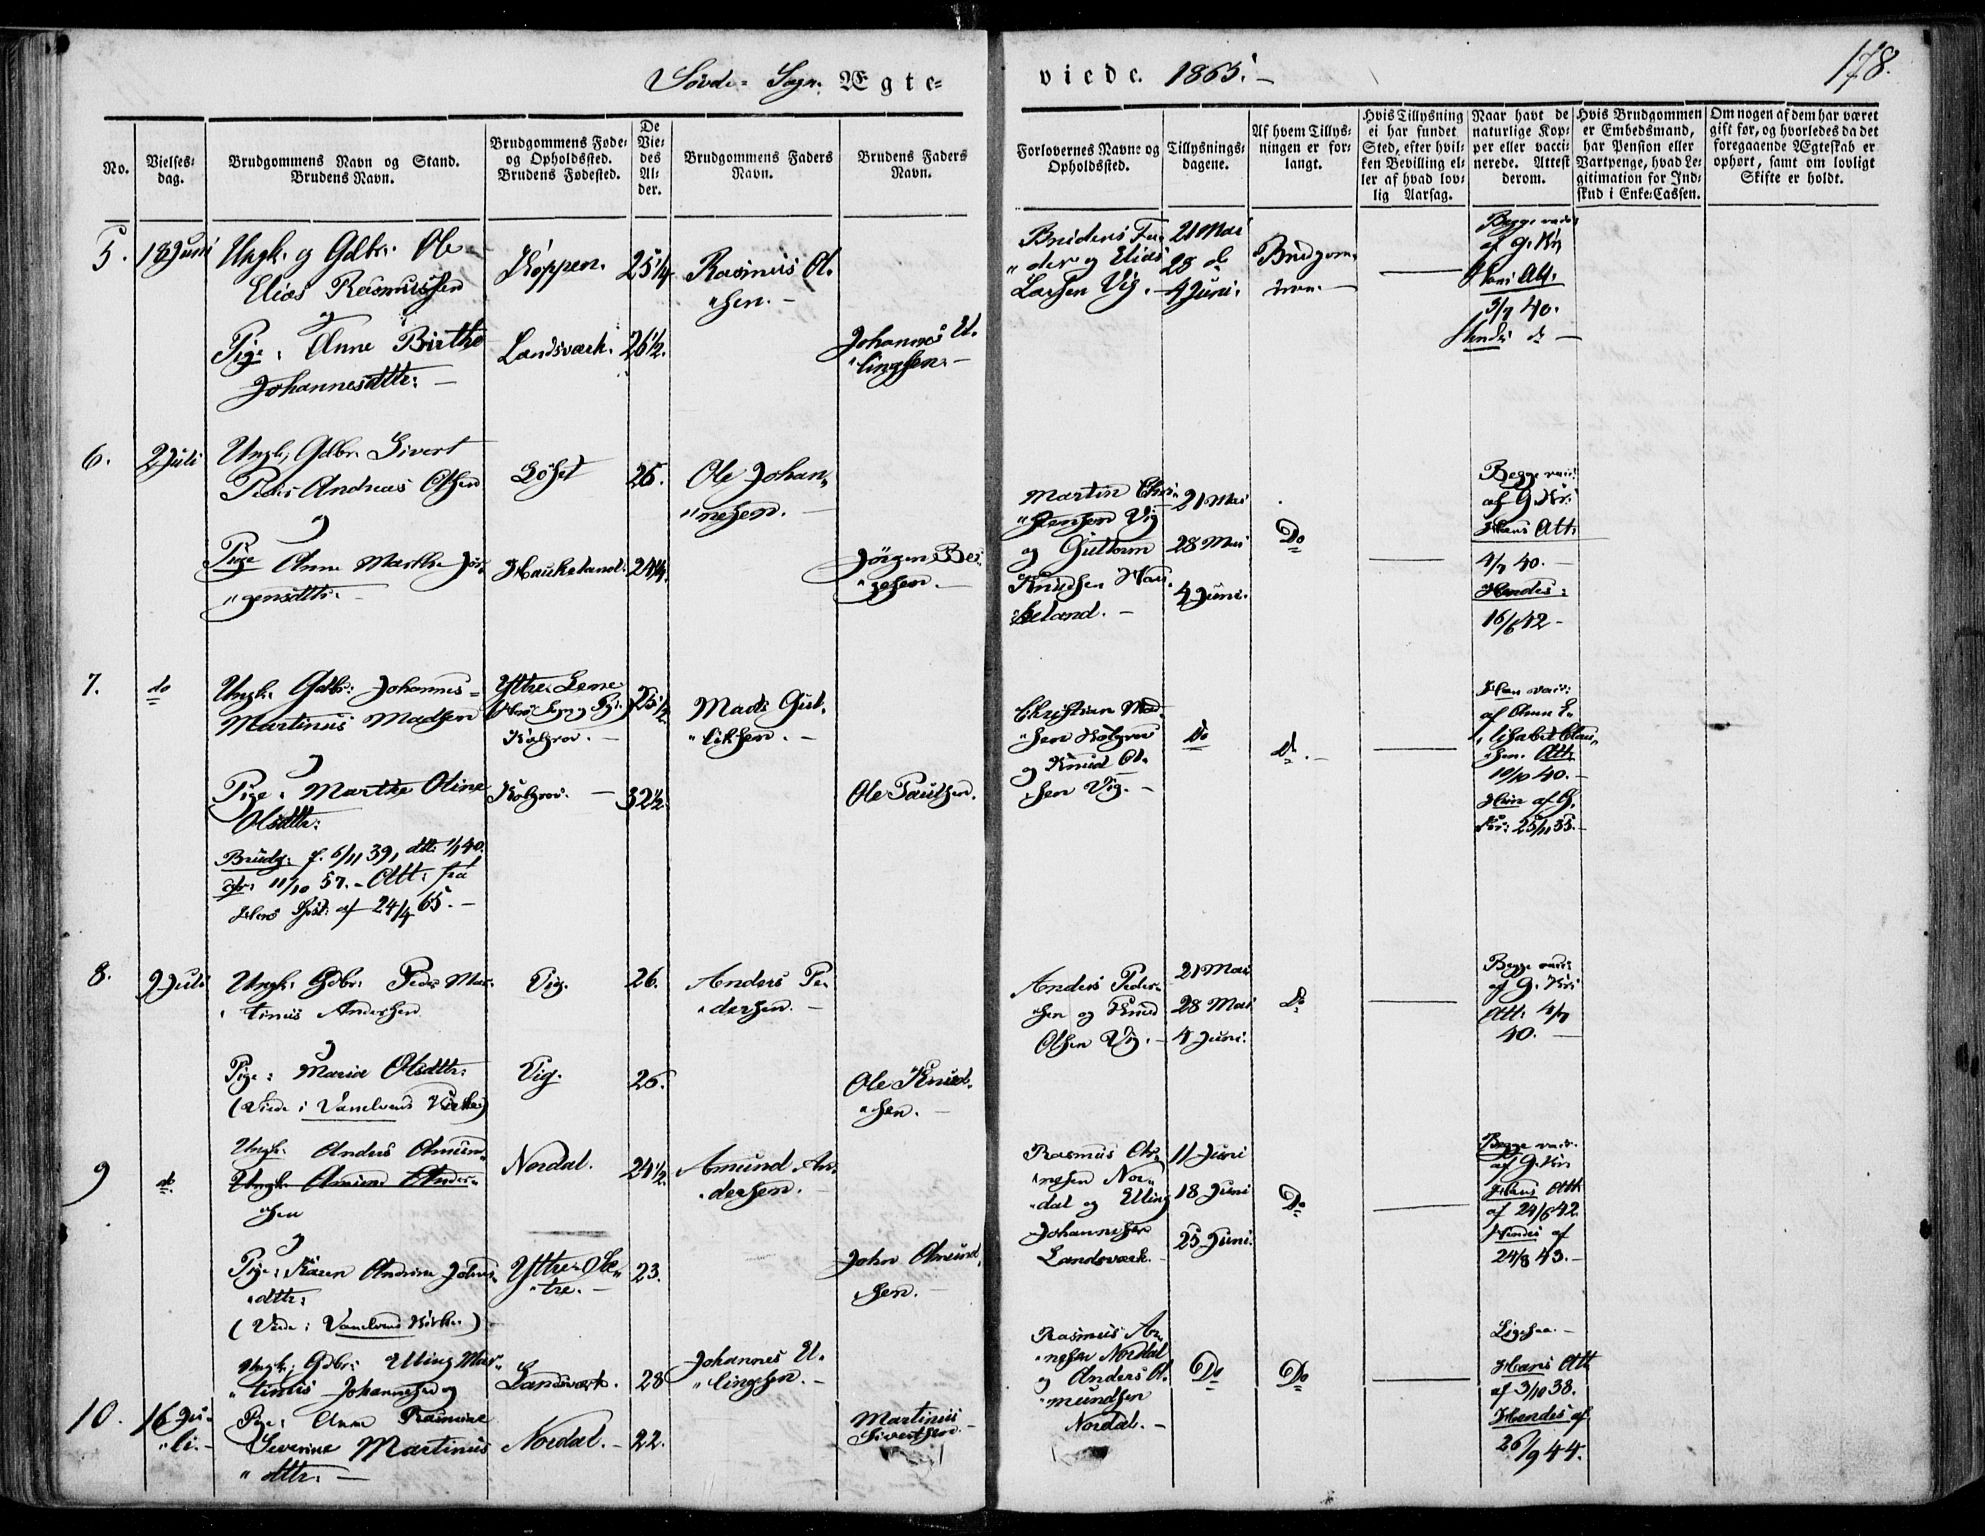 Søvde- Sogn. Ægte-
viede. 1865.-
178.
No.
Vielses-
dag.
Brudgommens Navn og Stand.
Brudens Navn.
Brudgommens Føde-
og Opholdssted.
Brudens Fødested.
De
Vie-
des
Al-
der.
Brudgommens Faders
Navn.
Brudens Faders
Navn.
Forlovernes Navne og
Opholdssted.
Tillysnings-
dagene.
Af hvem Tillys-
ningen er for-
langt.
Hvis Tillysning
ei har fundet
Sted, efter hvil-
ken Bevilling el-
ler af hvad lov-
lig Aarsag.
Naar havt de
naturlige Kop-
per eller vacci-
nerede. Attest
derom.
Hvis Brudgommen
er Embedsmand,
har Pension eller
Vartpenge, hvad Le-
gitimation for Ind-
skud i Enke-Cassen.
Om nogen af dem har været
gift før, og hvorledes da det
foregaaende Ægteskab er
ophørt, samt om lovligt
Skifte er holdt.
5.
18 Juni
Ungk. og Gdbr: Ole
Elias Rasmussen
og
Pige: Anne Birthe
Johannesdttr: -
Koppen.
Landsværk.
25 1/4
26 1/2.
Rasmus Ol-
"sen. -
Johannes El-
"lingsen. -
Brudens Fa-
"der og Elias
Larsen Vig. -
21 Mai
28 d
4 Juni.
Brudgom-
men. -
Begge vacc:
af G. Kr:
Hans Att:
3/7 40.
Hendes do -
6.
2 Juli
Ungk; Gdbr. Sivert
Peder Andreas Olsen
og
Pige Anne Marthe Jør-
"gensdttr. -
Løset
Haukeland.
25.
24 1/4.
Ole Johan-
"nesen. -
Jørgen Bei-
"gesen. -
Martin Chri-
"stensen Vig
og Guttorm
Knudsen Hau-
keland. -
21 Mai
28 Mai
4 Juni.
Do
Begge vacc:
af G. Kr:
Hans Att:
4/7 40. -
Hendes:
16/6 42 -
7.
do
Ungk: Gdbr: Johannes-
Martinus Madsen
og
Pige: Marthe Oline
Olsdttr:
Brudg: f. 6/11 39, dbt: 1/1 40.
cfr: 11/10 57. - Att: fra
Herø Spst: af 24/4 65. -
Ytre Leine
Kolgrov. -
Kolgrov. -
25 1/2
32 1/2.
Mads Gut-
"liksen. -
Ole Paulsen.
Christian Mad-
"sen Kolgrov
og Knud Ol-
sen Vig. -
Do
d. -
Han vacc:
af Anne E-
"lisabet Clau-
"sen. Att:
19/10 40. -
Hun af G.
Kr: 25/11 33. -
8.
2 Juli
Ungk: Gdbr: Peder Mar-
"tinus Andersen
og
Pige: Maria Olsdttr:
(Viede i Vanelvens Kirke)
Vig.
Vig.
26.
25.
Anders Pe-
"dersen. -
Ole Knud-
"sen. -
Anders Peder-
"sen og Knud
Olsen Vig. -
21 Mai
28 Mai
4 Juni.
Do
Begge vacc:
af G. Kr:
Att: 4/7
40. -
9
do.
Ungk: Anders Amun-
Ungk: Amund Ander-
sen
og
Pige: Karen Andrine Johns-
"dttr:
(Viede i Vanelvens Kirke.)
Nordal.
Yttre-Sæ-
"tre. -
24 1/2.
23.
Amund An-
"dersen. -
John Amund-
sen. -
Rasmus Ar-
"nesen Nor-
"dal og Elling
Johannesen
Landsværk. -
11 Juni
18 Juni
25 Juni.
Do
Begge vacc.
af G. Kr:
Hans Att:
af 24/6 42
Hendes af
24/8 43. -
10.
16 Ju-
"li. -
Ungk; Gdbr: Elling Mar-
"tinus Johannesen og
Pige: Anne Rasmine
Severine Martinus
"dttr: -
Landsværk.
Nordal. -
28
22.
Johannes El-
"lingsen. -
Martinus
Sivertsen. -
Rasmus Ar-
"nesen Nordal
og Anders A-
"mundsen
Nordal. -
Do
Do
Ligesaa. -
Hans Att:
af 3/10 38.
Hendes af
26/9 44.